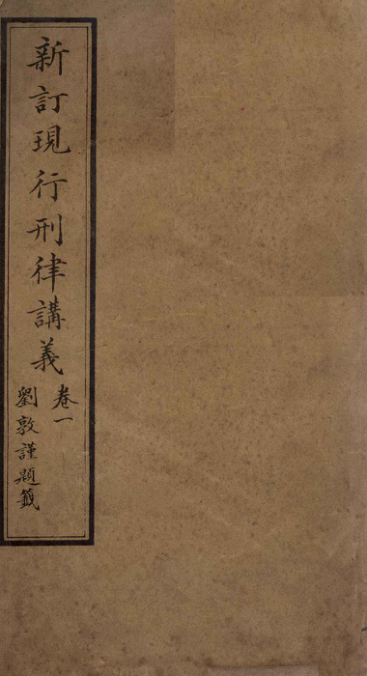 新訂現行刑律講義
卷一
劉敦謹題籤